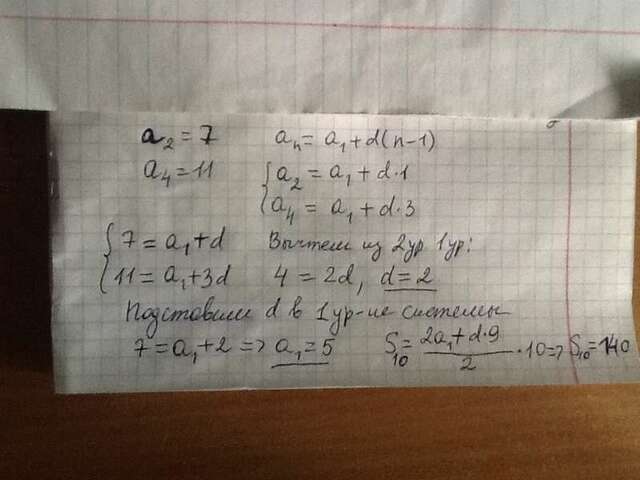 a₂ = 7 aₙ = a₁ + d(n-1)
a₄ = 11 { a₂ = a₁ + d·1
a₄ = a₁ + d·3
{ 7 = a₁ + d Вычтем из 2ур 1ур:
11 = a₁ + 3d 4 = 2d, d = 2
Подставим d в 1 ур-ие системы
7 = a₁ + 2 => a₁ = 5 S₁₀ = (2a₁ + d·9)/2 · 10 => S₁₀ = 140